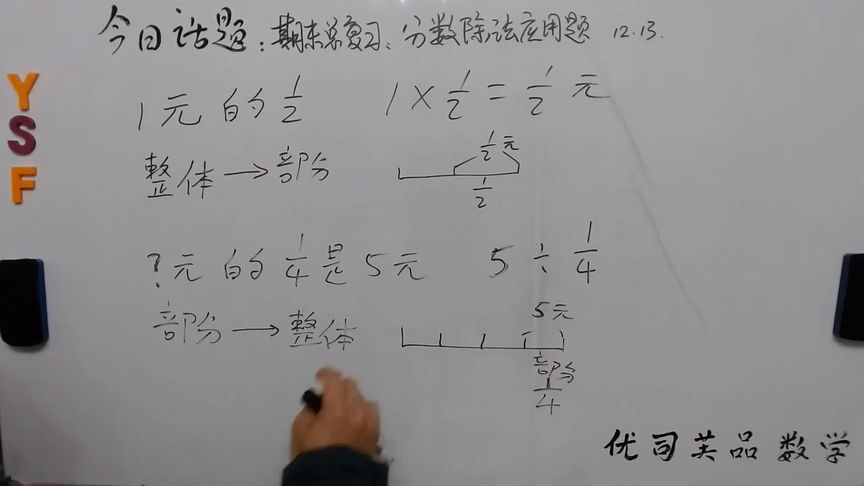 今日话题:期末总复习:分数除法应用题 12.13.
YSF
1元的1/2 1×1/2=1/2元
整体→部分 1/2元
1/2
?元的1/4是5元 5÷1/4
部分→整体 5元
部分
1/4
优司英品数学